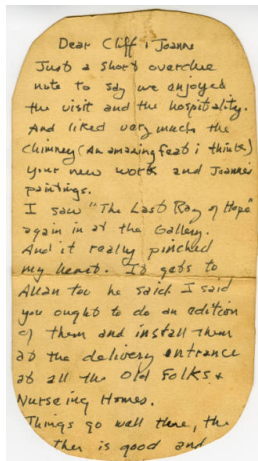 Dear Cliff & Joanne
Just a short overdue
note to say we enjoyed
the visit and the hospitality.
And liked very much the
chimney (An amazing feat i think)
your new work and Joannes
paintings.
I saw "The Last Ray of Hope"
again in at the Gallery.
And it really pinched
my heart. It gets to
Allan too he said I said
you ought to do an edition
of them and install them
at the delivery entrance
at all the Old Folks +
Nurseing Homes.
Things go well there, the
ther is good and